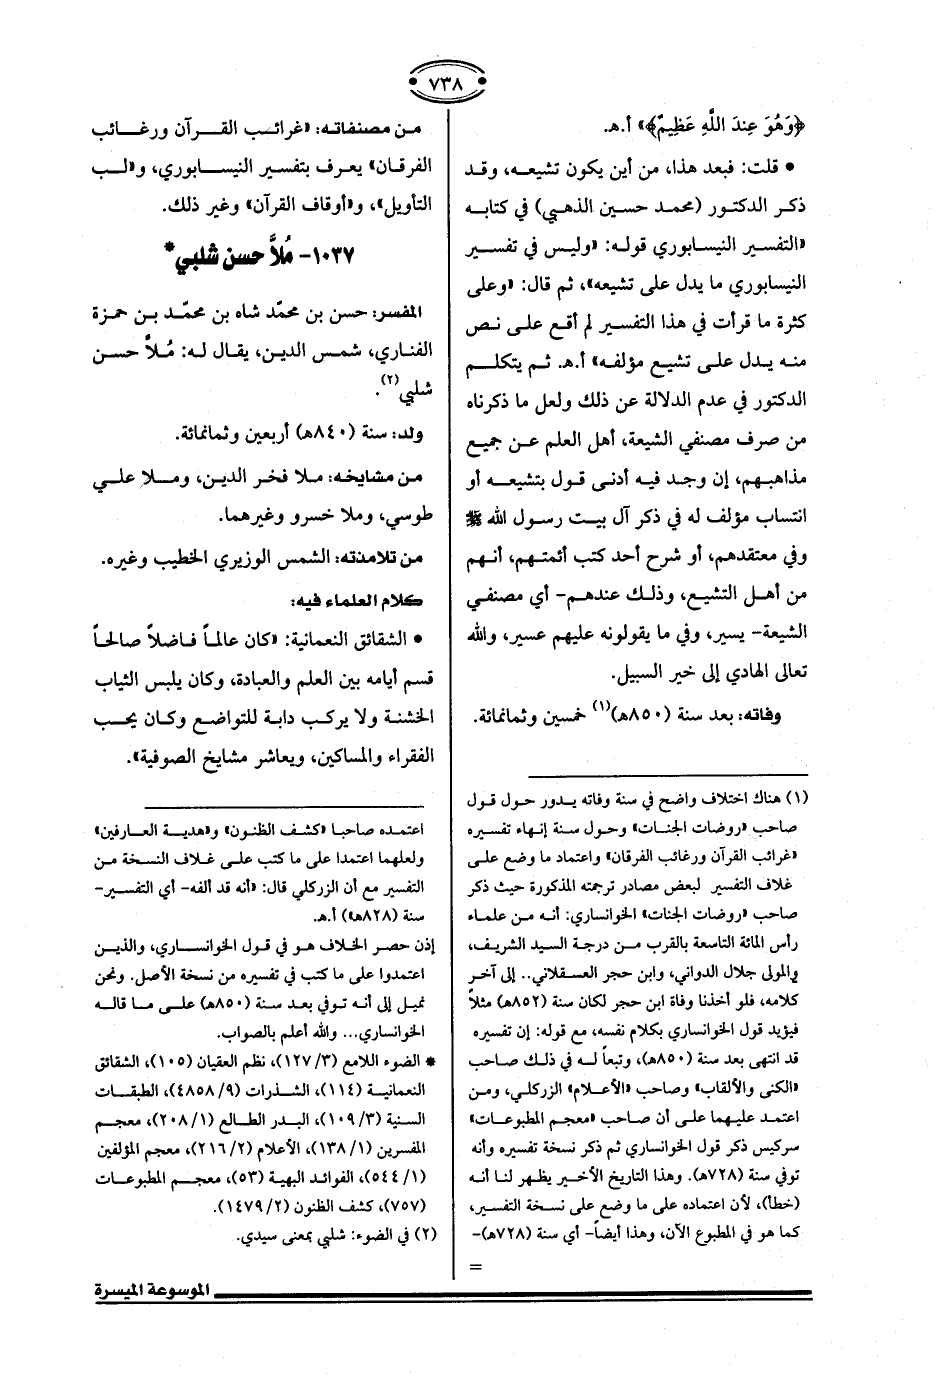 ٧٣٨
﴿وَهُوَ عِندَ اللَّهِ عَظِيمٌ﴾» أ.هـ.
• قلت: فبعد هذا، من أين يكون تشيعه، وقد
ذكر الدكتور (محمد حسين الذهبي) في كتابه
«التفسير النيسابوري قوله: «وليس في تفسير
النيسابوري ما يدل على تشيعه»، ثم قال: «وعلى
كثرة ما قرأت في هذا التفسير لم أقع على نص
منه يدل على تشيع مؤلفه» أ.هـ. ثم يتكلم
الدكتور في عدم الدلالة عن ذلك ولعل ما ذكرناه
من صرف مصنفي الشيعة، أهل العلم عن جميع
مذاهبهم، إن وجد فيه أدنى قول بتشيعه أو
انتساب مؤلف له في ذكر آل بيت رسول الله ﷺ
وفي معتقدهم، أو شرح أحد كتب أئمتهم، أنهم
من أهل التشيع، وذلك عندهم- أي مصنفي
الشيعة- يسير، وفي ما يقولونه عليهم عسير، والله
تعالى الهادي إلى خير السبيل.
وفاته: بعد سنة (٨٥٠هـ)(١) خمسين وثمانمائة.
(١) هناك اختلاف واضح في سنة وفاته يدور حول قول
صاحب «روضات الجنات» وحول سنة إنهاء تفسيره
«غرائب القرآن ورغائب الفرقان» واعتماد ما وضع على
غلاف التفسير لبعض مصادر ترجمته المذكورة حيث ذكر
صاحب «روضات الجنات» الخوانساري: أنه من علماء
رأس المائة التاسعة بالقرب من درجة السيد الشريف،
والمولى جلال الدواني، وابن حجر العسقلاني.. إلى آخر
كلامه، فلو أخذنا وفاة ابن حجر لكان سنة (٨٥٢هـ) مثلاً
فيؤيد قول الخوانساري بكلام نفسه، مع قوله: إن تفسيره
قد انتهى بعد سنة (٨٥٠هـ)، وتبعاً له في ذلك صاحب
«الكنى والألقاب» وصاحب «الأعلام» الزركلي، ومن
اعتمد عليهما على أن صاحب «معجم المطبوعات»
سركيس ذكر قول الخوانساري ثم ذكر نسخة تفسيره وأنه
توفي سنة (٧٢٨هـ). وهذا التاريخ الأخير يظهر لنا أنه
(خطأ)، لأن اعتماده على ما وضع على نسخة التفسير،
كما هو في المطبوع الآن، وهذا أيضاً- أي سنة (٧٢٨هـ)-
=
من مصنفاته: «غرائب القرآن ورغائب
الفرقان» يعرف بتفسير النيسابوري، و«لب
التأويل»، و«أوقاف القرآن» وغير ذلك.
١٠٣٧- مُلاَّ حسن شلبي*
المفسر: حسن بن محمّد شاه بن محمّد بن حمزة
الفناري، شمس الدين، يقال له: مُلاَّ حسن
شلبي(٢).
ولد: سنة (٨٤٠هـ) أربعين وثمانمائة.
من مشايخه: ملا فخر الدين، وملا علي
طوسي، وملا خسرو وغيرهما.
من تلامذته: الشمس الوزيري الخطيب وغيره.
كلام العلماء فيه:
• الشقائق النعمانية: «كان عالماً فاضلاً صالحاً
قسم أيامه بين العلم والعبادة، وكان يلبس الثياب
الخشنة ولا يركب دابة للتواضع وكان يحب
الفقراء والمساكين، ويعاشر مشايخ الصوفية».
اعتمده صاحبا «كشف الظنون» و«هدية العارفين»
ولعلهما اعتمدا على ما كتب على غلاف النسخة من
التفسير مع أن الزركلي قال: «أنه قد ألفه- أي التفسير-
سنة (٨٢٨هـ)» أ.هـ.
إذن حصر الخلاف هو في قول الخوانساري، والذين
اعتمدوا على ما كتب في تفسيره من نسخة الأصل. ونحن
نميل إلى أنه توفي بعد سنة (٨٥٠هـ) على ما قاله
الخوانساري... والله أعلم بالصواب.
* الضوء اللامع (٣/١٢٧)، نظم العقيان (١٠٥)، الشقائق
النعمانية (١١٤)، الشذرات (٩/٤٨٥٨)، الطبقات
السنية (٣/١٠٩)، البدر الطالع (١/٢٠٨)، معجم
المفسرين (١/١٣٨)، الأعلام (٢/٢١٦)، معجم المؤلفين
(١/٥٤٤)، الفوائد البهية (٥٣)، معجم المطبوعات
(٧٥٧)، كشف الظنون (٢/١٤٧٩).
(٢) في الضوء: شلبي بمعنى سيدي.
الموسوعة الميسرة